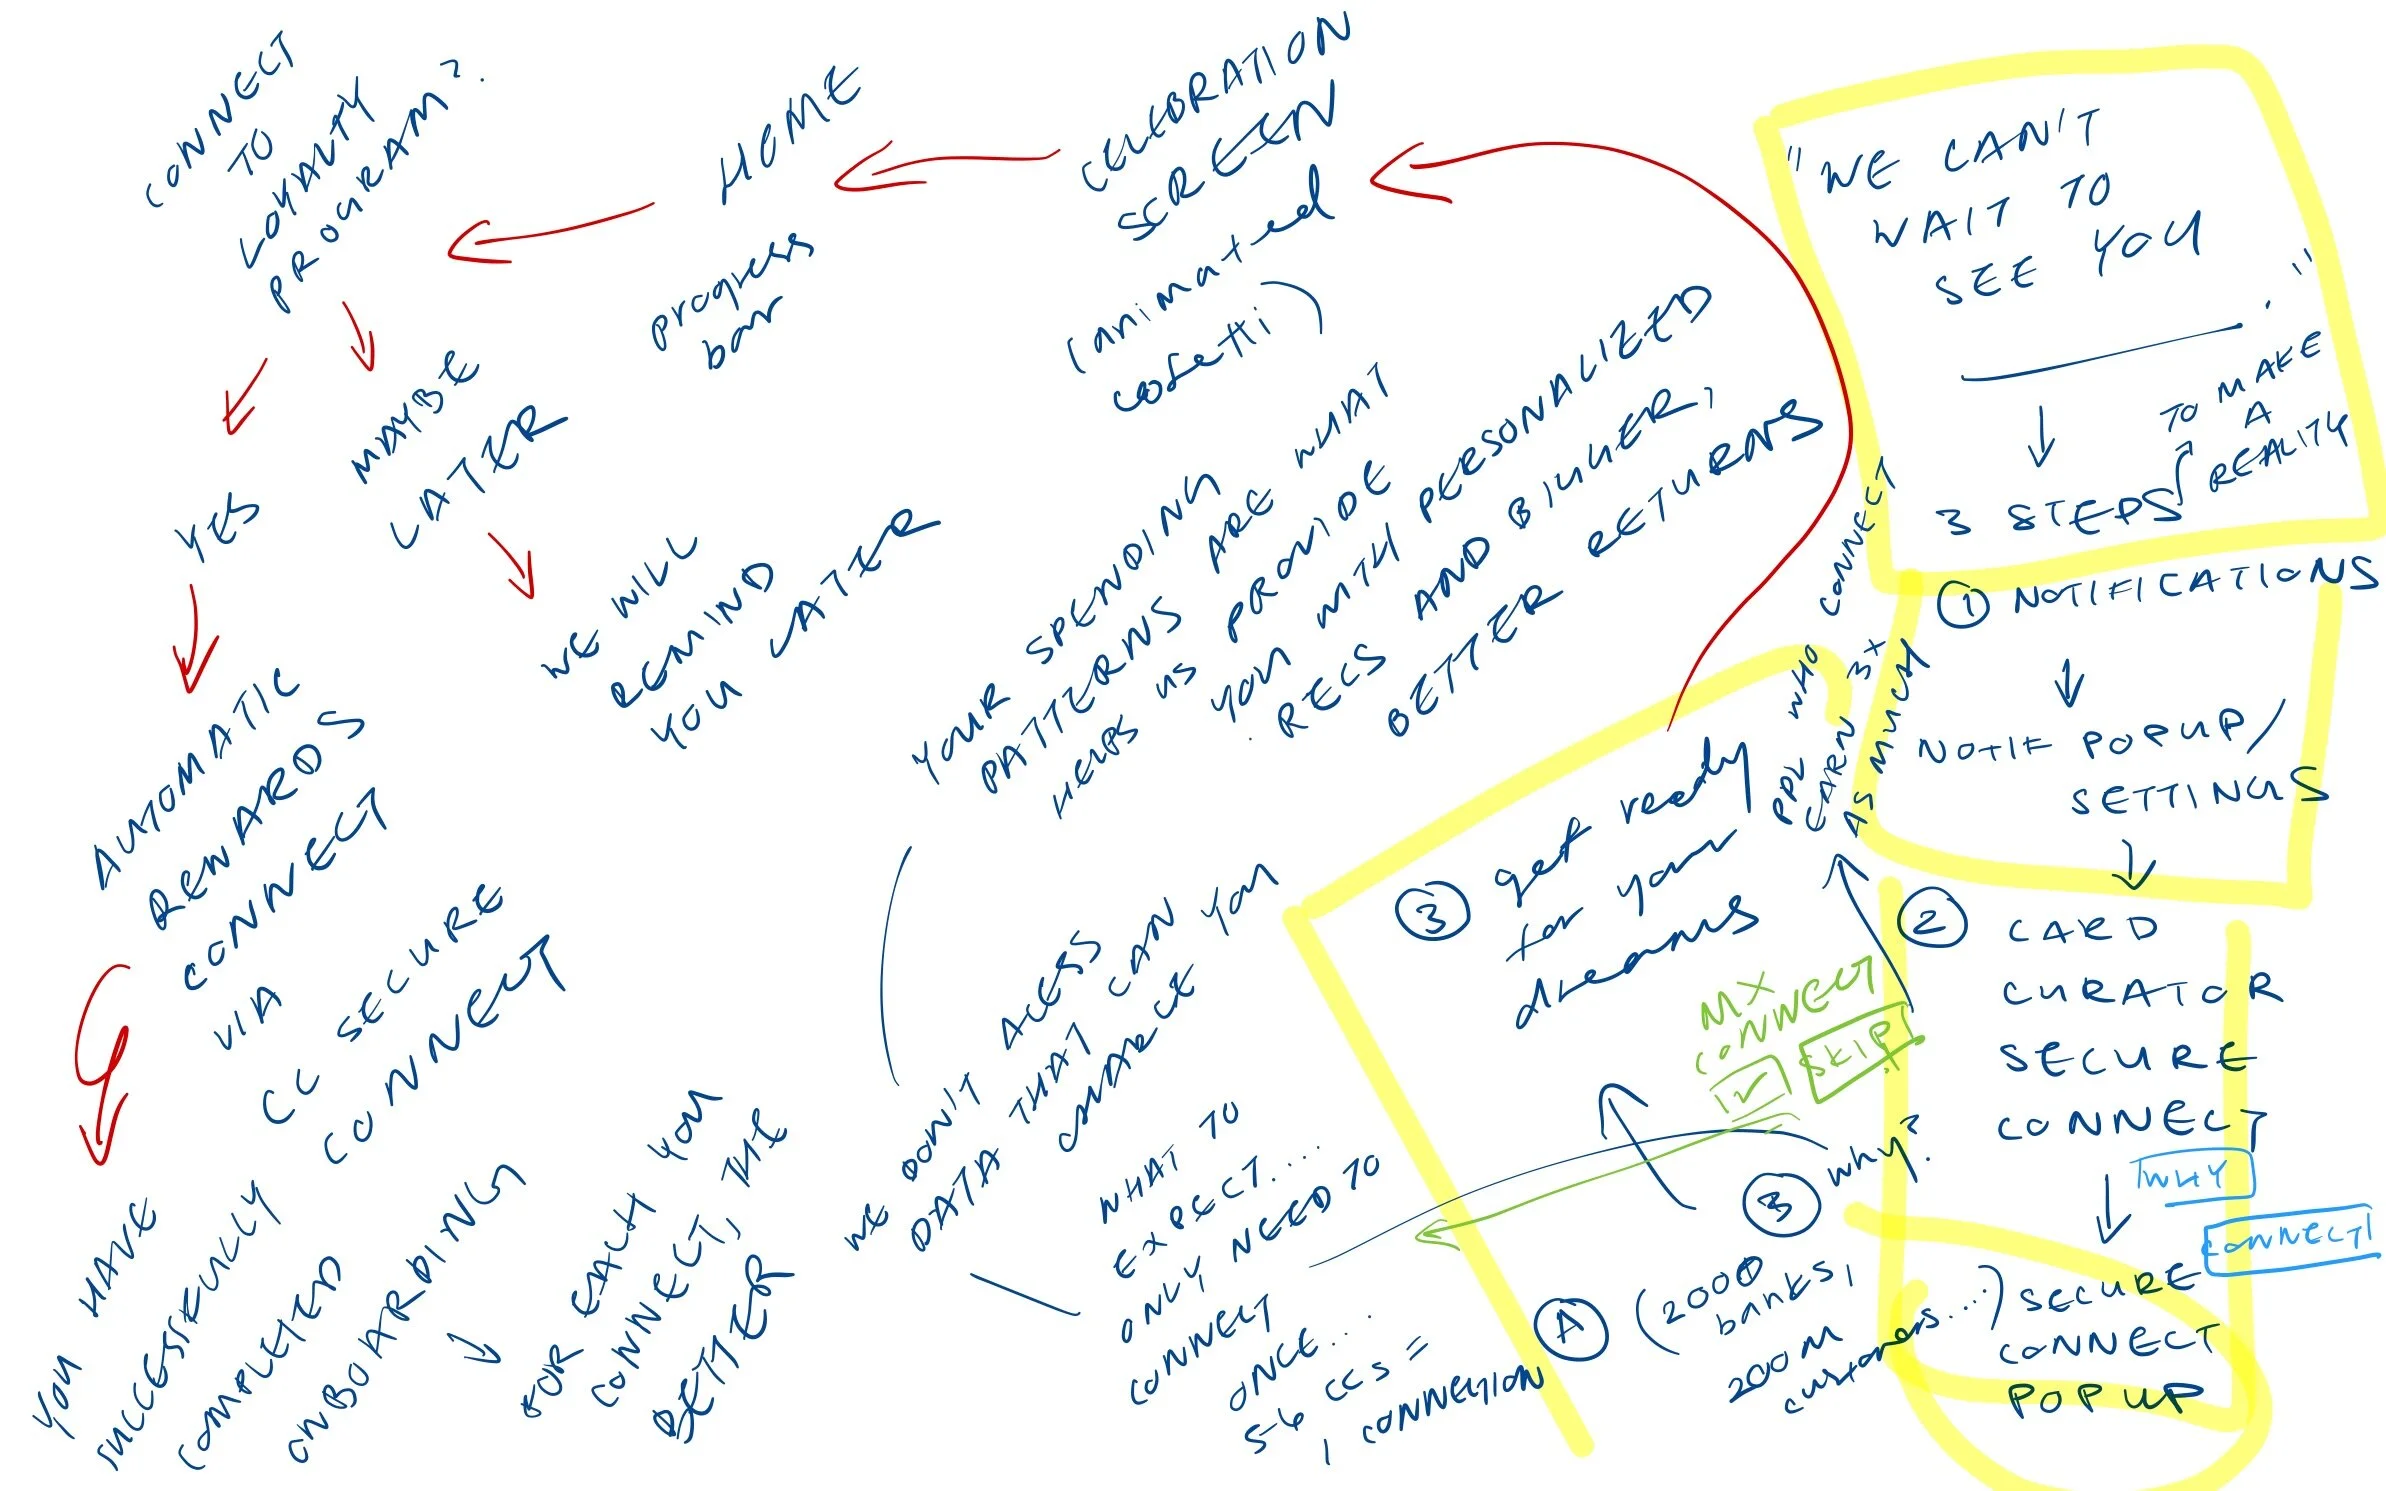 "WE CAN'T
WAIT TO
SEE YOU
."
TO MAKE
A
REALITY
3 STEPS
1 NOTIFICATIONS
NOTIF POPUP/
SETTINGS
2 CARD
CURATOR
SECURE
CONNECT
WHY
CONNECT
SECURE
CONNECT
POPUP
PPL WHO CONNECT
EARN 3x
AS MUCH
MX
CONNECT
SKIP
B why?
A (2000
banks,
200M
customers....)
3 get ready
for your
dreams
YOUR SPENDING
PATTERNS ARE WHAT
HELPS US PROVIDE
YOU WITH PERSONALIZED
RECS AND BIGGER,
BETTER RETURNS
WE DON'T ACESS
DATA THAT CAN
YOU
WHAT TO
EXPECT....
ONLY NEED TO
CONNECT
ONCE...
5-6 CCS =
1 CONNECTION
CELEBRATION
SCREEN
(animated
cofetti)
HOME
progress
bar
CONNECT
TO
LOYALTY
PROGRAM?.
MAYBE
LATER
WE WILL
REMIND
YOU LATER
YES
AUTOMATIC
REWARDS
CONNECT
VIA
CC SECURE
CONNECT
YOU HAVE
SUCCESSFULLY
COMPLETED
ONBOARDING
FOR EACH YOU
CONNECT, THE
BETTER